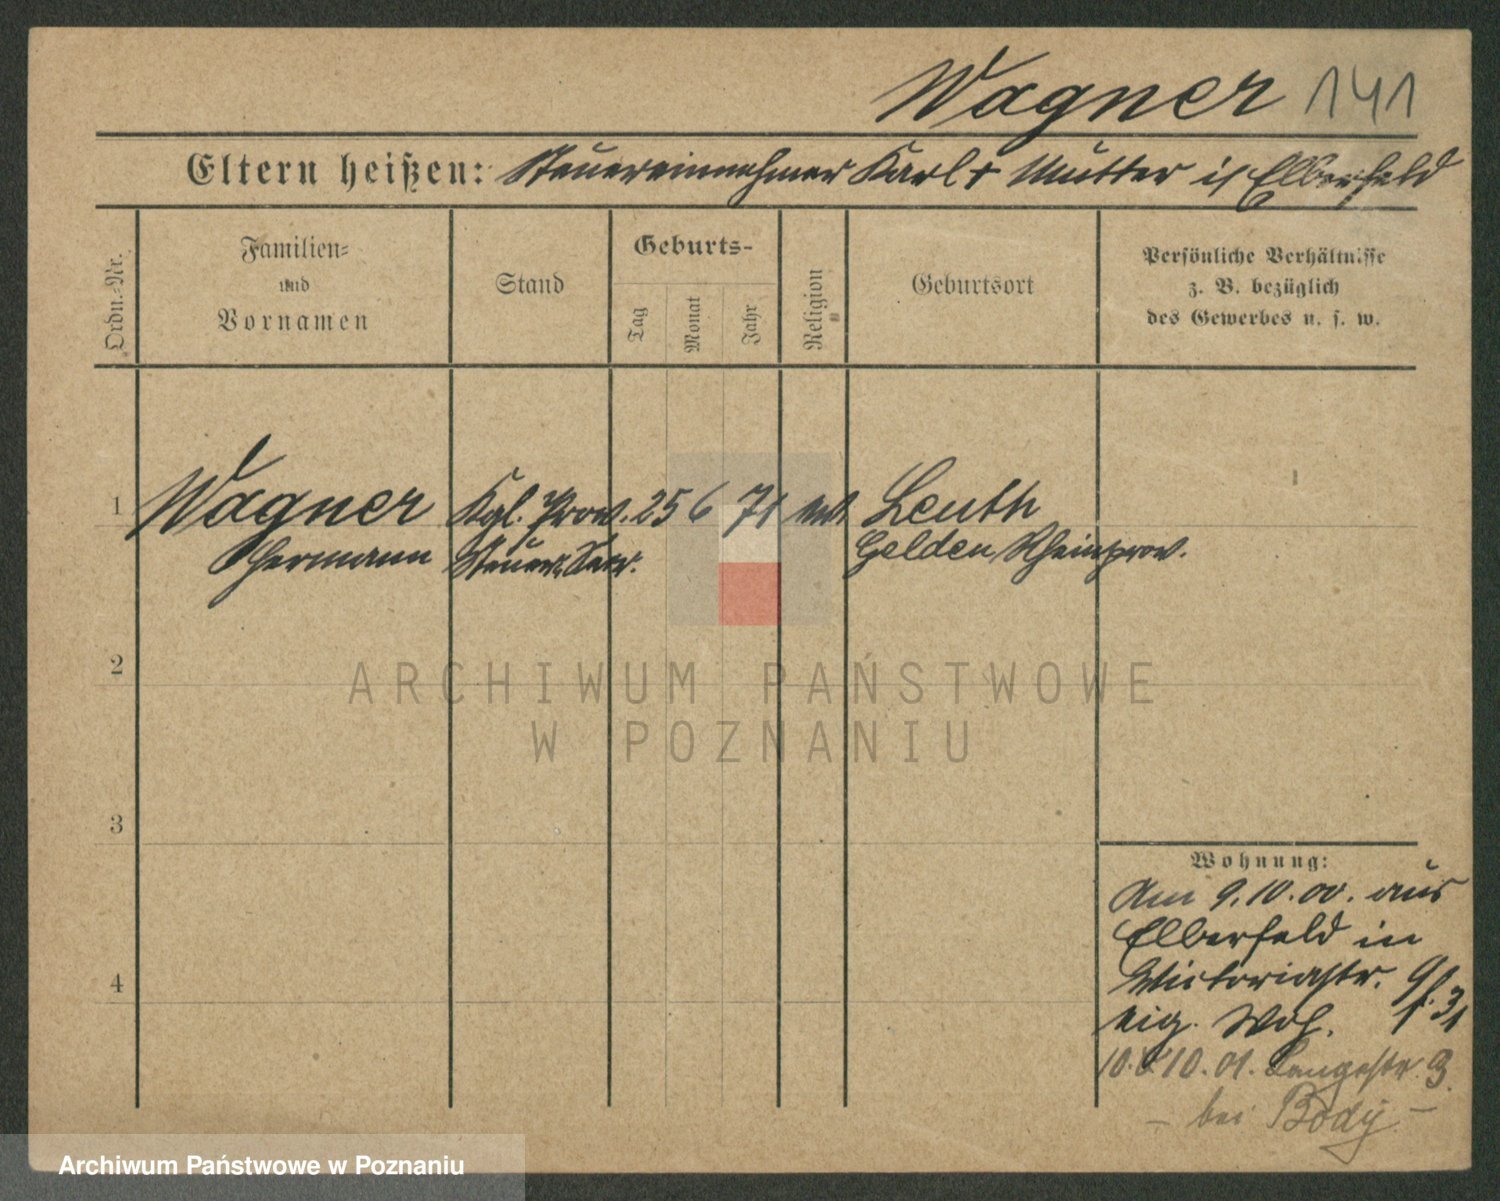 Wagner 141
Eltern heißen: Steuereinnehmer Karl † Mutter i/ Elberfeld
Ordn.-Nr.
Familien-
und
Vornamen
Stand
Geburts-
Tag
Monat
Jahr
Religion
Geburtsort
Persönliche Verhältnisse
z. B. bezüglich
des Gewerbes u. s. w.
1 Wagner Kgl. Prov. 25 6 71 Leuth
Hermann Steuer. Sekr. Geldern Rheinprov.
2
3
4
Wohnung:
Am 9.10.00. aus
Elberfeld in
Victoriastr.
eig. Woh.
10. 01. Langestr. 3.
- bei Body -
ARCHIWUM PAŃSTWOWE
W POZNANIU
Archiwum Państwowe w Poznaniu